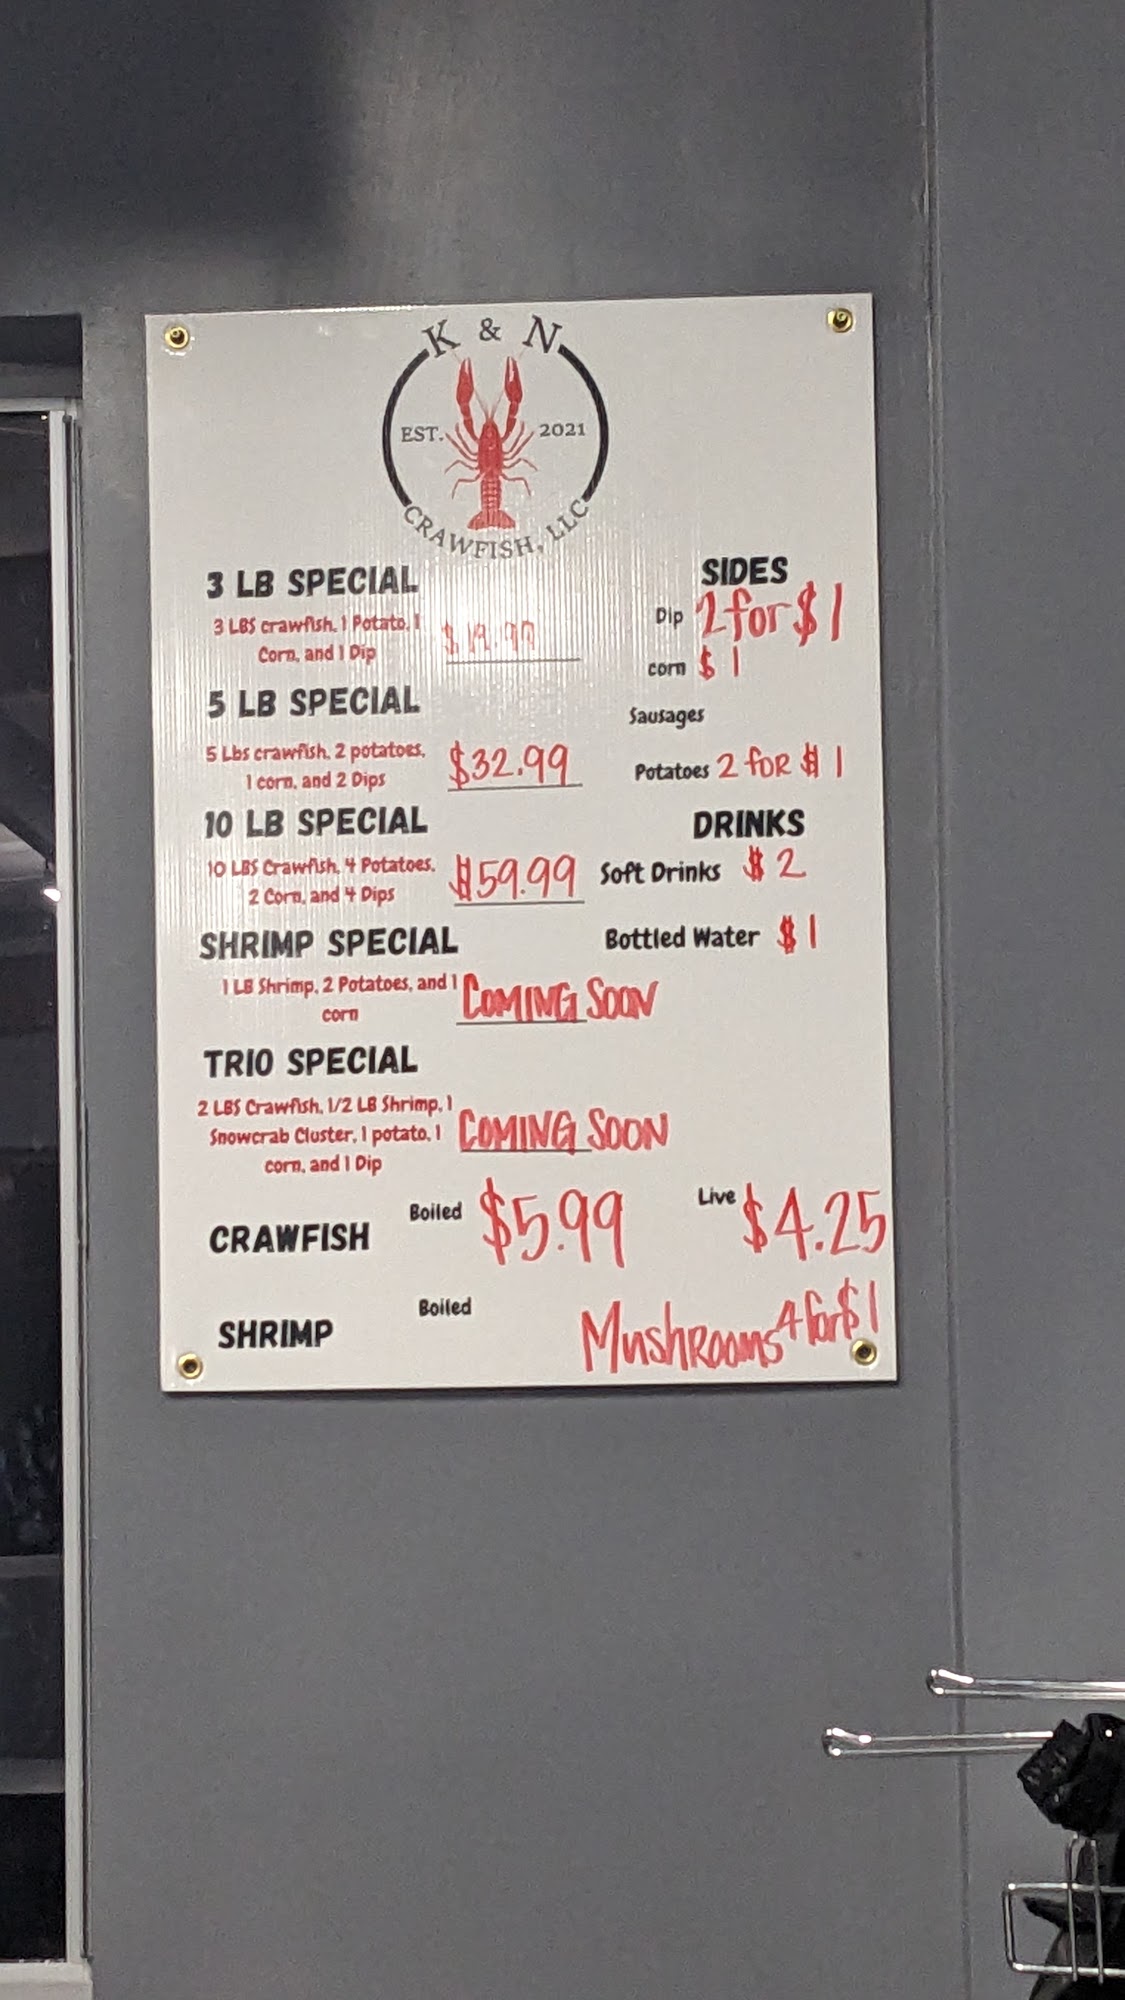 K & N
EST. 2021
CRAWFISH, LLC
3 LB SPECIAL
3 LBS crawfish, 1 Potato, 1
Corn, and 1 Dip
5 LB SPECIAL
5 Lbs crawfish, 2 potatoes,
1 corn, and 2 Dips
$32.99
10 LB SPECIAL
10 LBS Crawfish, 4 Potatoes,
2 Corn, and 4 Dips
$59.99
SHRIMP SPECIAL
1 LB Shrimp, 2 Potatoes, and 1
corn
COMING SOON
TRIO SPECIAL
2 LBS Crawfish, 1/2 LB Shrimp, 1
Snowcrab Cluster, 1 potato, 1
corn, and 1 Dip
COMING SOON
SIDES
Dip 2 for $1
corn $1
Sausages
Potatoes 2 FOR $1
DRINKS
Soft Drinks $2
Bottled Water $1
CRAWFISH Boiled $5.99 Live $4.25
SHRIMP Boiled
Mushrooms 4 for $1